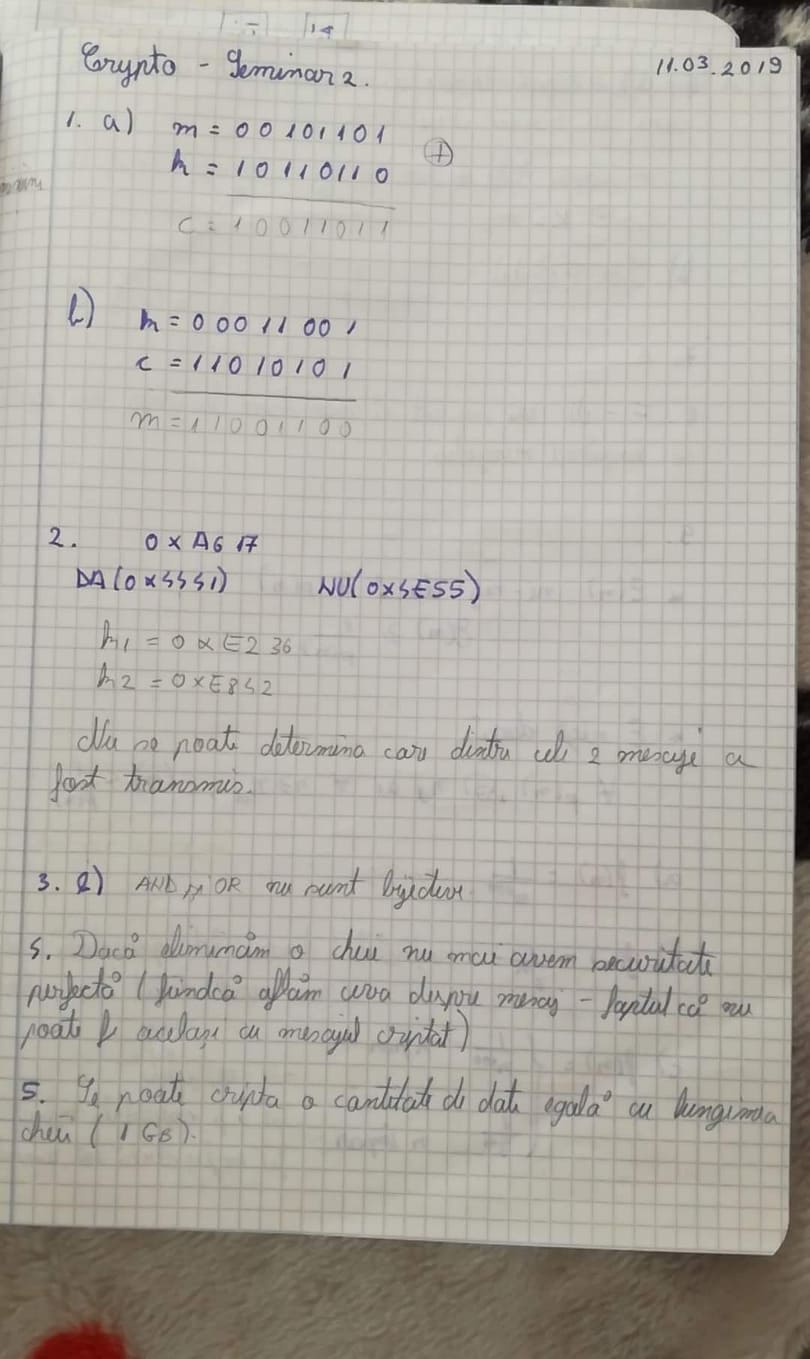 Crypto - Seminar 2.
11.03.2019
1. a) m = 00101101
k = 10110110 ⊕
c = 10011011
b) k = 00011001
c = 11010101
m = 11001100
2. 0xA617
DA(0x4441) NU(0x4E55)
k1 = 0xE236
k2 = 0xE842
Nu se poate determina care dintre cele 2 mesaje a
fost transmis.
3. a) AND și OR nu sunt bijective
4. Dacă eliminăm o cheie nu mai avem securitate
perfectă (fiindcă aflăm ceva despre mesaj - faptul că nu
poate fi același cu mesajul criptat)
5. Se poate cripta o cantitate de date egală cu lungimea
cheii (1 GB).